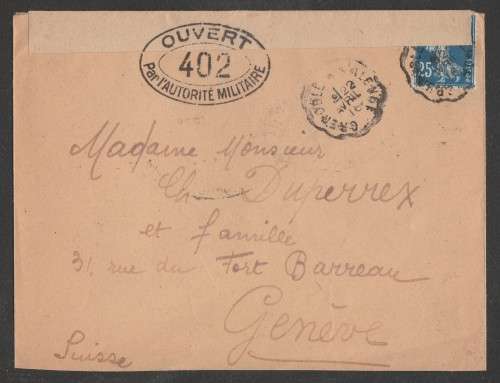 OUVERT
402
Par l'AUTORITÉ MILITAIRE
GRENOBLE A VALENCE
25
Madame Monsieur
Ch Duperrex
et famille
31, rue du Fort Barreau
Genève
Suisse